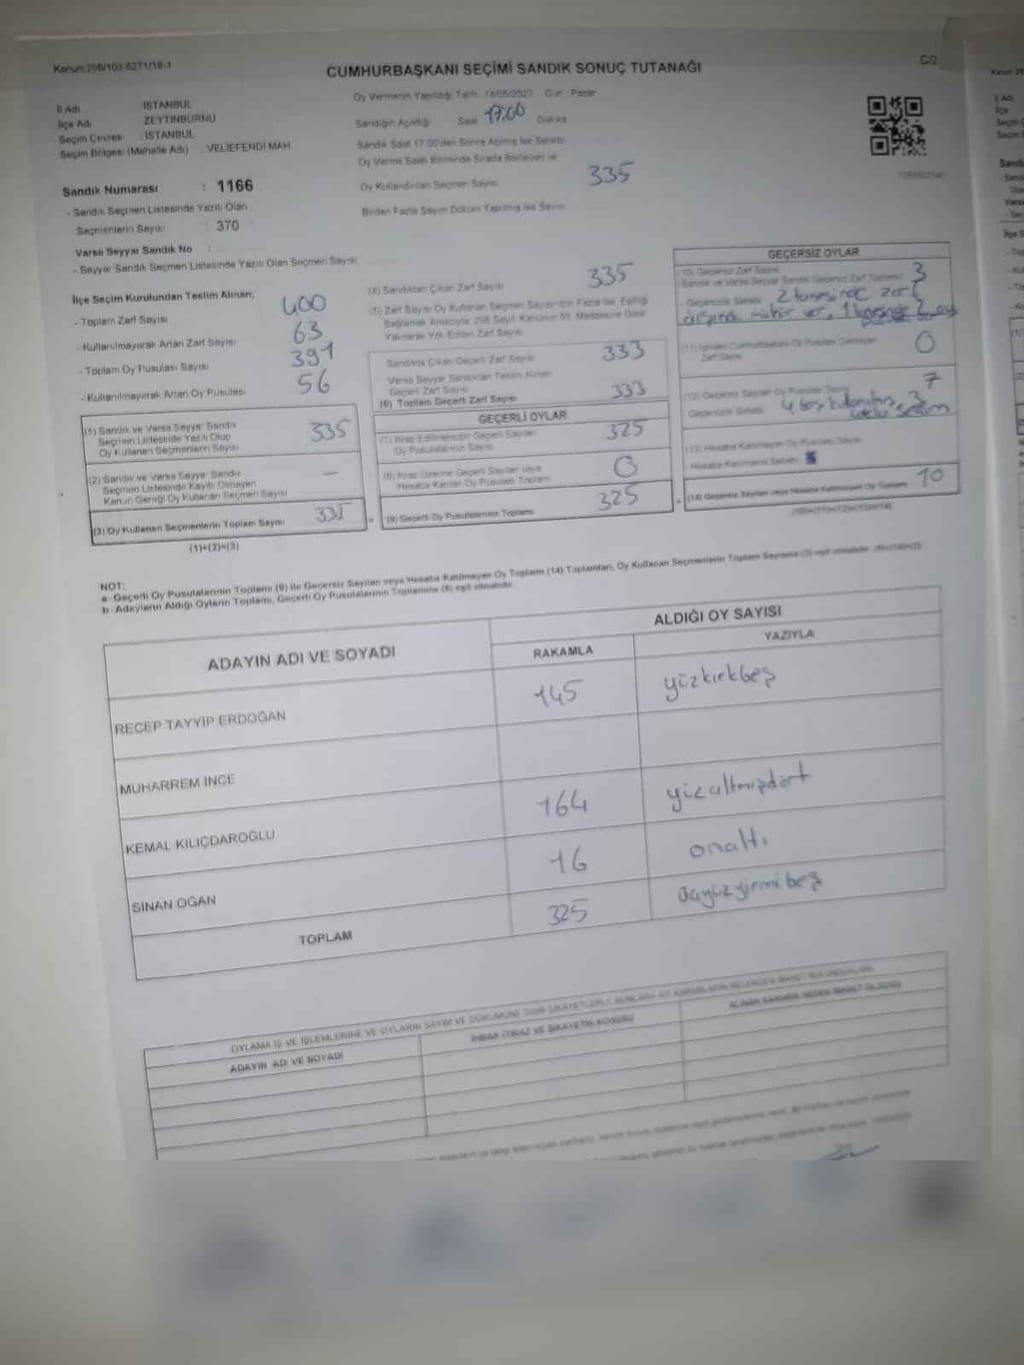 Kanun:298/103;6271/18-1
C/2
CUMHURBAŞKANI SEÇİMİ SANDIK SONUÇ TUTANAĞI
İl Adı : İSTANBUL
İlçe Adı : ZEYTİNBURNU
Seçim Çevresi : İSTANBUL
Seçim Bölgesi (Mahalle Adı) : VELİEFENDİ MAH.
Oy Vermenin Yapıldığı Tarih 14/05/2023 Gün Pazar
Sandığın Açıldığı Saat 17.00 Dakika
Sandık Saat 17.00'den Sonra Açılmış İse Sebebi
Oy Verme Saati Bitiminde Sırada Bekleyen
Oy Kullandırılan Seçmen Sayısı 335
Birden Fazla Sayım Döküm Yapılmış İse Sayısı
Sandık Numarası : 1166
- Sandık Seçmen Listesinde Yazılı Olan
Seçmenlerin Sayısı : 370
Varsa Seyyar Sandık No :
- Seyyar Sandık Seçmen Listesinde Yazılı Olan Seçmen Sayısı
İlçe Seçim Kurulundan Teslim Alınan;
- Toplam Zarf Sayısı 400
- Kullanılmayarak Artan Zarf Sayısı 63
- Toplam Oy Pusulası Sayısı 391
- Kullanılmayarak Artan Oy Pusulası 56
(1) Sandık ve Varsa Seyyar Sandık
Seçmen Listesinde Yazılı Olup
Oy Kullanan Seçmenlerin Sayısı 335
(2) Sandık ve Varsa Seyyar Sandık
Seçmen Listesinde Kayıtlı Olmayan
Kanun Gereği Oy Kullanan Seçmen Sayısı —
(3) Oy Kullanan Seçmenlerin Toplam Sayısı 335
(1)+(2)=(3)
(4) Sandıktan Çıkan Zarf Sayısı 335
(5) Zarf Sayısı Oy Kullanan Seçmen Sayısından Fazla İse, Eşitliği
Sağlamak Amacıyla, 298 Sayılı Kanunun 98. Maddesine Göre
Yakılarak Yok Edilen Zarf Sayısı
Sandıkta Çıkan Geçerli Zarf Sayısı 333
Varsa Seyyar Sandıktan Teslim Alınan
Geçerli Zarf Sayısı
(6) Toplam Geçerli Zarf Sayısı 333
GEÇERLİ OYLAR
(7) İtiraz Edilmeksizin Geçerli Sayılan
Oy Pusulalarının Sayısı 325
(8) İtiraz Üzerine Geçerli Sayılan veya
Hesaba Katılan Oy Pusulası Toplamı 0
(9) Geçerli Oy Pusulalarının Toplamı 325
GEÇERSİZ OYLAR
(10) Geçersiz Zarf Sayısı
Sandık ve Varsa Seyyar Sandık Geçersiz Zarf Toplamı 3
- Geçersizlik Sebebi 2 tanesinde zarf
dışında mühür var, 1 tanesinde 2 oy
(11) İçinden Cumhurbaşkanı Oy Pusulası Çıkmayan
Zarf Sayısı 0
(12) Geçersiz Sayılan Oy Pusulası Sayısı 7
Geçersizlik Sebebi 4 boş kullanılmış, 3
seçim
(13) Hesaba Katılmayan Oy Pusulası Sayısı
- Hesaba Katılmama Sebebi
(14) Geçersiz Sayılan veya Hesaba Katılmayan Oy Toplamı 10
(10)+(11)+(12)+(13)=(14)
NOT:
a- Geçerli Oy Pusulalarının Toplamı (9) ile Geçersiz Sayılan veya Hesaba Katılmayan Oy Toplamı (14) Toplamları, Oy Kullanan Seçmenlerin Toplam Sayısına (3) eşit olmalıdır. (9)+(14)=(3)
b- Adayların Aldığı Oyların Toplamı, Geçerli Oy Pusulalarının Toplamına (9) eşit olmalıdır.
ADAYIN ADI VE SOYADI
ALDIĞI OY SAYISI
RAKAMLA YAZIYLA
RECEP TAYYİP ERDOĞAN 145 yüzkırkbeş
MUHARREM İNCE
KEMAL KILIÇDAROĞLU 164 yüzaltmışdört
SİNAN OĞAN 16 onaltı
TOPLAM 325 üçyüzyirmibeş
OYLAMA İŞ VE İŞLEMLERİNE VE OYLARIN SAYIM VE DÖKÜMÜNE DAİR ŞİKAYETLERLE BUNLARA AİT KARARLARIN NELERDEN İBARET BULUNDUKLARI
ADAYIN ADI VE SOYADI
İHBAR İTİRAZ VE ŞİKAYETİN KONUSU
ALINAN KARARIN NEDEN İBARET OLDUĞU